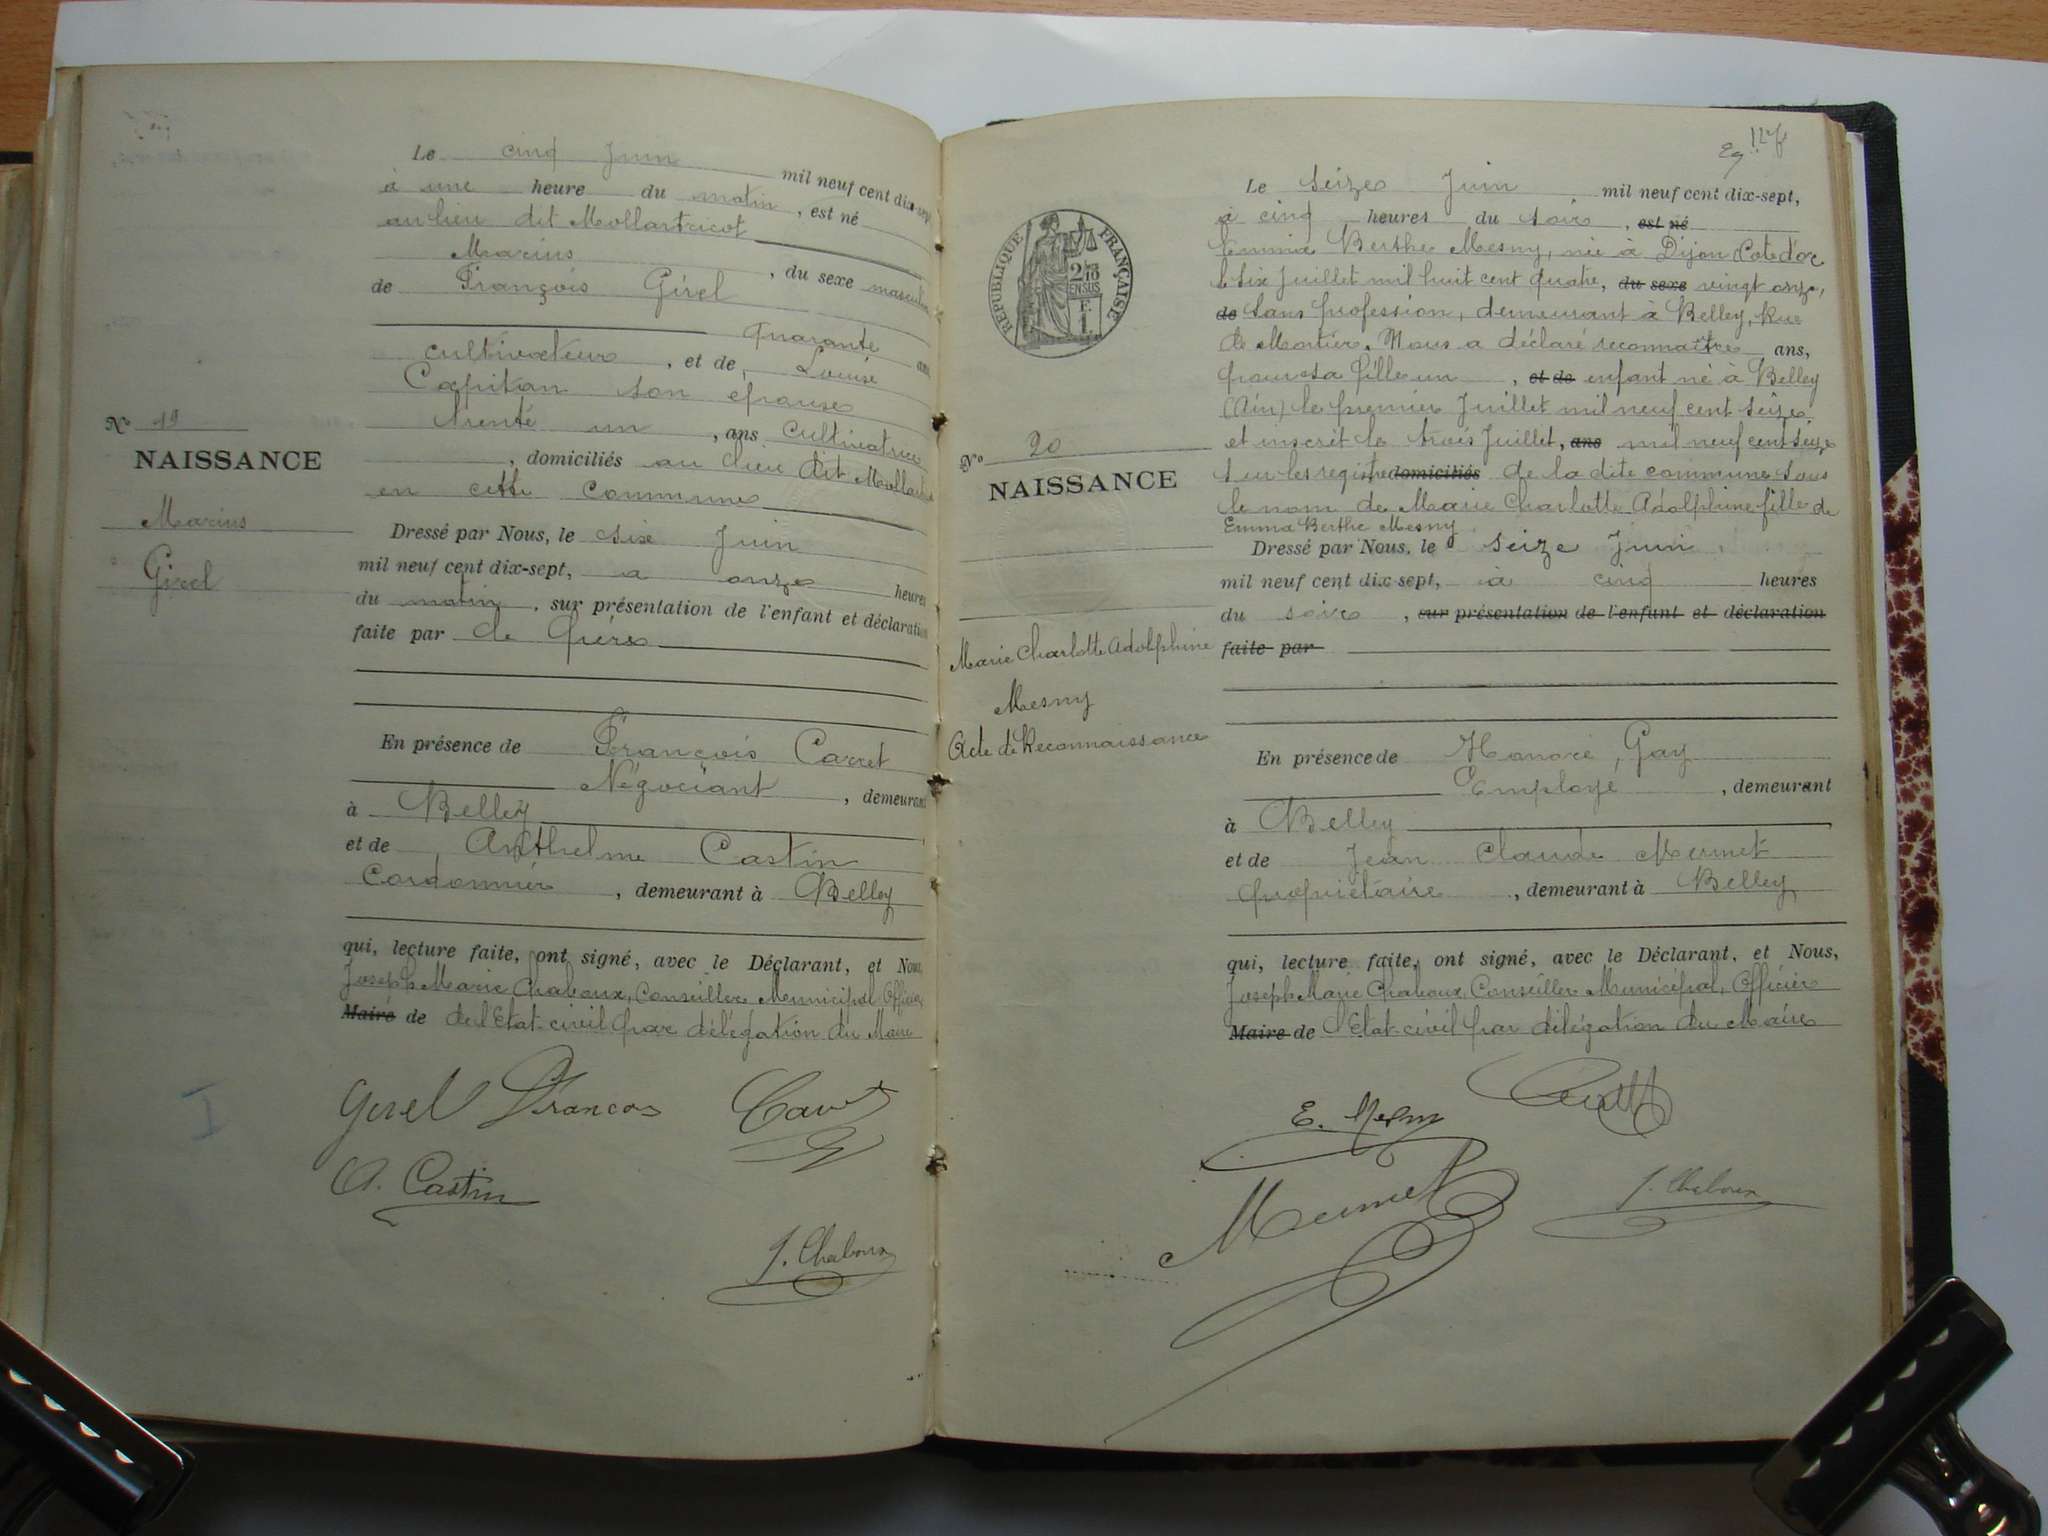 Le cinq Juin mil neuf cent dix-sept
à une heure du matin, est né
au lieu dit Mollartricot
Marius, du sexe masculin
de François Girel
quarante ans
cultivateur, et de Louise
Capitan son épouse
trente un, ans cultivatrice
, domiciliés au lieu dit Mollart
en cette commune
No 19
NAISSANCE
Marius
Girel
Dressé par Nous, le six Juin
mil neuf cent dix-sept, à onze heures
du matin, sur présentation de l'enfant et déclaration
faite par le père
En présence de François Carret
Négociant, demeurant
à Belley
et de Anthelme Castin
Cordonnier, demeurant à Belley
qui, lecture faite, ont signé, avec le Déclarant, et Nous,
Joseph Marie Chaboux, Conseiller Municipal Officier
Maire de de l'Etat-civil par délégation du Maire
Girel Francois Carret
A. Castin
J. Chaboux
I
RÉPUBLIQUE FRANÇAISE
2/10 EN SUS
F. 1.
Le seize Juin mil neuf cent dix-sept,
à cinq heures du soir, est né
Emma Berthe Mesny, née à Dijon Cote d'or
le six Juillet mil huit cent quatre, du sexe vingt onze,
de sans profession, demeurant à Belley, Rue
du Mortier. Nous a déclaré reconnaître ans,
pour sa fille un, et de enfant né à Belley
(Ain) le premier Juillet mil neuf cent seize
et inscrit le trois Juillet, ans mil neuf cent seize
sur les registre domiciliés de la dite commune sous
le nom de Marie Charlotte Adolphine fille de
Emma Berthe Mesny
No 20
NAISSANCE
Marie Charlotte Adolphine
Mesny
Acte de Reconnaissance
Dressé par Nous, le seize Juin
mil neuf cent dix-sept, à cinq heures
du soir, sur présentation de l'enfant et déclaration
faite par
En présence de Honoré, Gay
Employé, demeurant
à Belley
et de Jean Claude Mermet
propriétaire, demeurant à Belley
qui, lecture faite, ont signé, avec le Déclarant, et Nous,
Joseph Marie Chaboux, Conseiller Municipal, Officier
Maire de l'Etat-civil par délégation du Maire
E. Mesny
Mermet
J. Chaboux